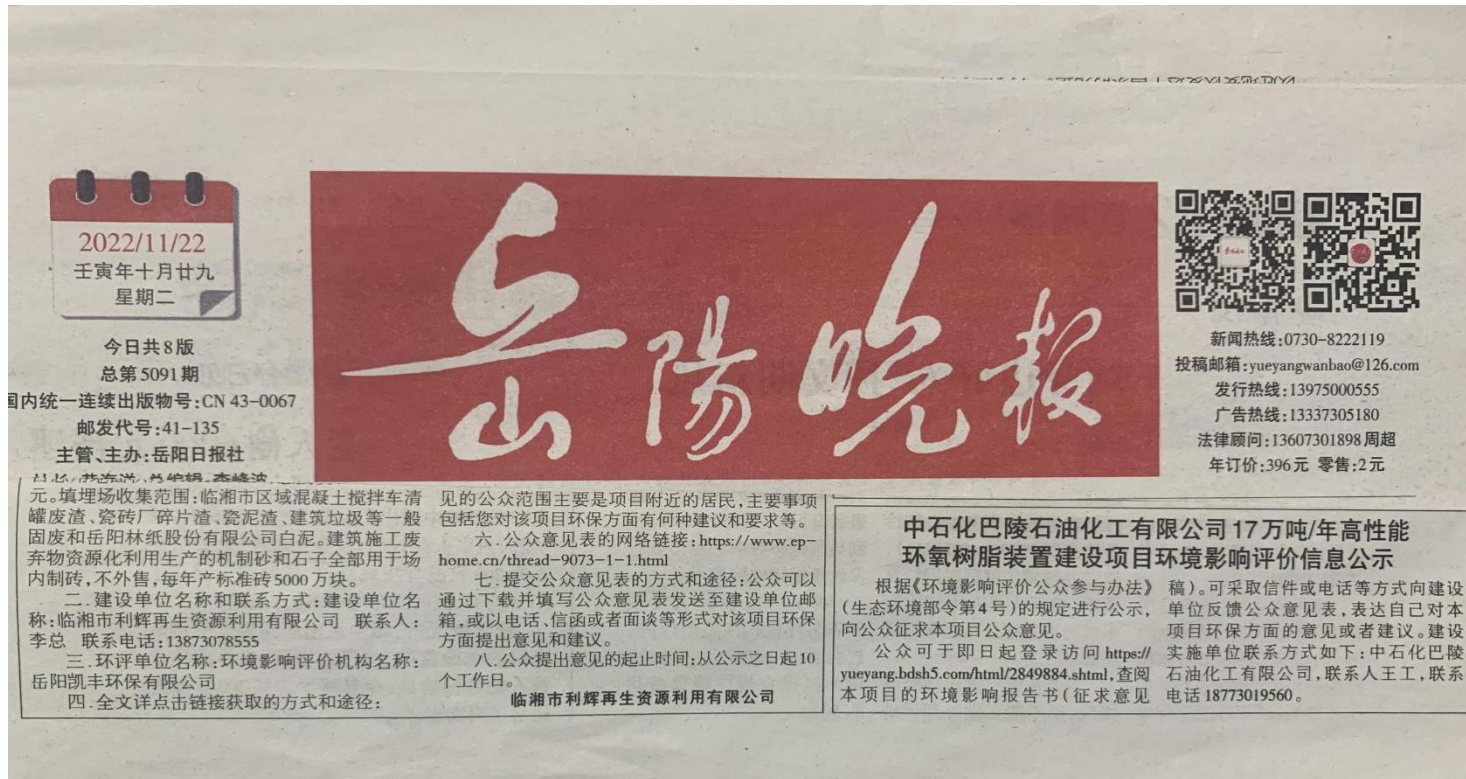 2022/11/22
壬寅年十月廿九
星期二
今日共8版
总第5091期
国内统一连续出版物号:CN 43-0067
邮发代号:41-135
主管、主办:岳阳日报社
岳陽晚报
新闻热线:0730-8222119
投稿邮箱:yueyangwanbao@126.com
发行热线:13975000555
广告热线:13337305180
法律顾问:13607301898 周超
年订价:396元 零售:2元
元。填埋场收集范围:临湘市区域混凝土搅拌车清
罐废渣、瓷砖厂碎片渣、瓷泥渣、建筑垃圾等一般
固废和岳阳林纸股份有限公司白泥。建筑施工废
弃物资源化利用生产的机制砂和石子全部用于场
内制砖,不外售,每年产标准砖5000万块。
二.建设单位名称和联系方式:建设单位名
称:临湘市利辉再生资源利用有限公司 联系人:
李总 联系电话:13873078555
三.环评单位名称:环境影响评价机构名称:
岳阳凯丰环保有限公司
四.全文详点击链接获取的方式和途径:
见的公众范围主要是项目附近的居民,主要事项
包括您对该项目环保方面有何种建议和要求等。
六.公众意见表的网络链接:https://www.ep-
home.cn/thread-9073-1-1.html
七.提交公众意见表的方式和途径:公众可以
通过下载并填写公众意见表发送至建设单位邮
箱,或以电话、信函或者面谈等形式对该项目环保
方面提出意见和建议。
八.公众提出意见的起止时间:从公示之日起10
个工作日。
临湘市利辉再生资源利用有限公司
中石化巴陵石油化工有限公司17万吨/年高性能
环氧树脂装置建设项目环境影响评价信息公示
根据《环境影响评价公众参与办法》
(生态环境部令第4号)的规定进行公示,
向公众征求本项目公众意见。
公众可于即日起登录访问https://
yueyang.bdsh5.com/html/2849884.shtml,查阅
本项目的环境影响报告书(征求意见
稿)。可采取信件或电话等方式向建设
单位反馈公众意见表,表达自己对本
项目环保方面的意见或者建议。建设
实施单位联系方式如下:中石化巴陵
石油化工有限公司,联系人王工,联系
电话18773019560。